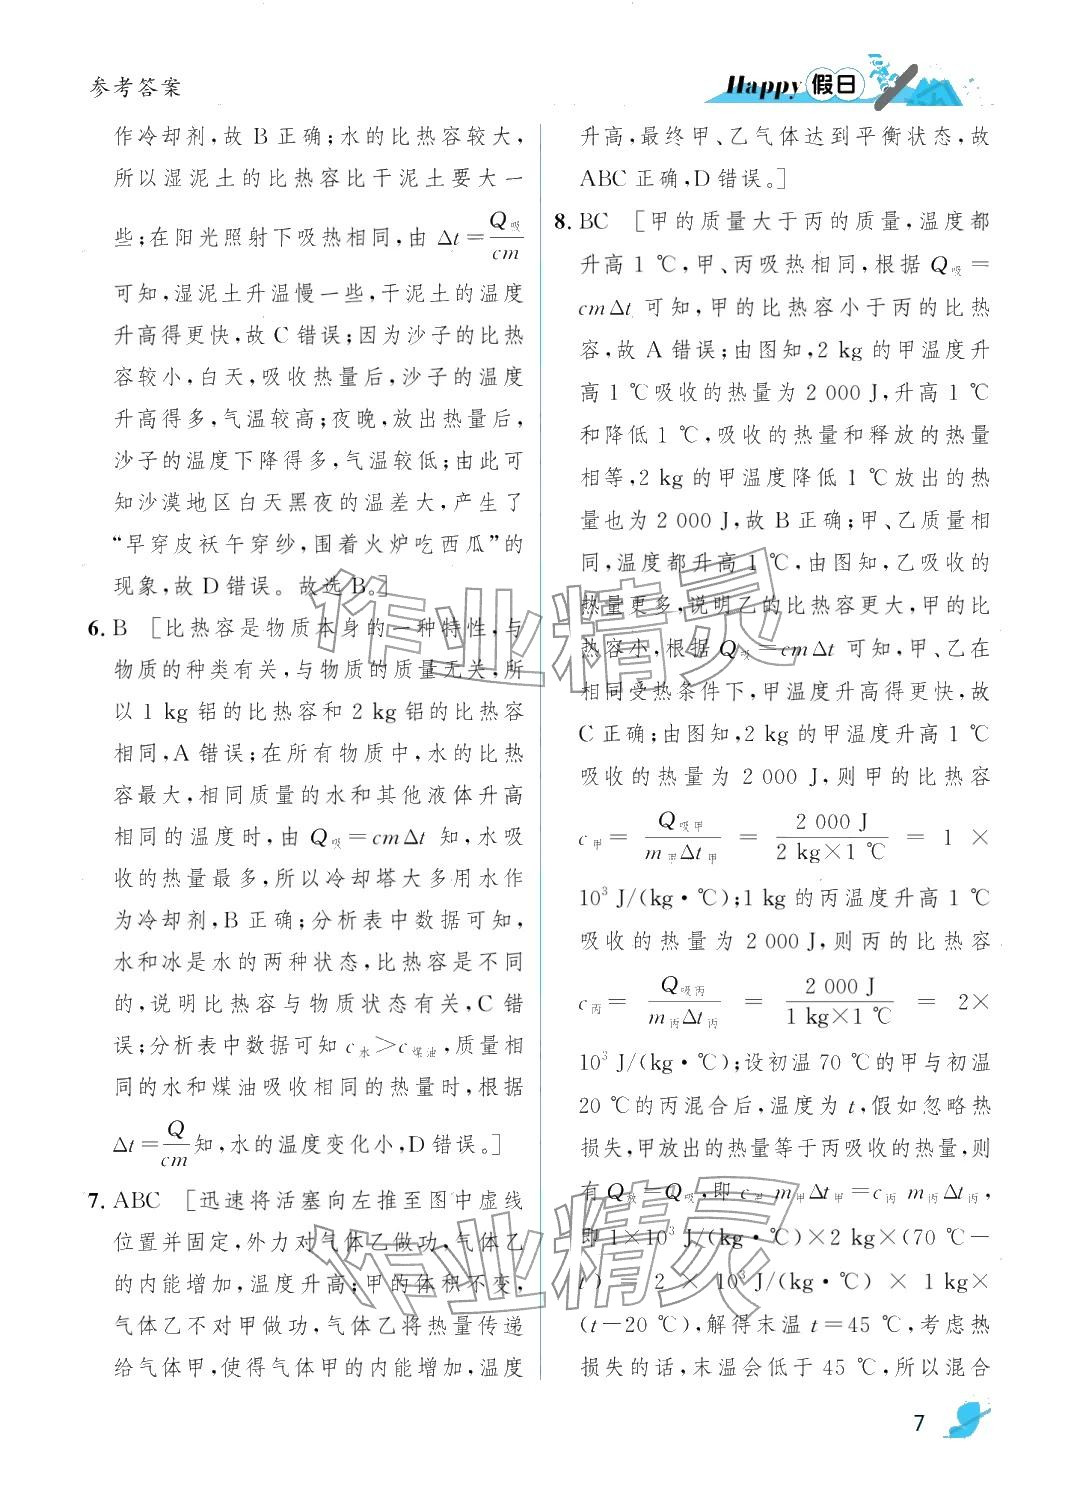 参考答案
Happy假日
作冷却剂,故 B 正确;水的比热容较大,
所以湿泥土的比热容比干泥土要大一
些;在阳光照射下吸热相同,由 Δt=Q吸/cm
可知,湿泥土升温慢一些,干泥土的温度
升高得更快,故 C 错误;因为沙子的比热
容较小,白天,吸收热量后,沙子的温度
升高得多,气温较高;夜晚,放出热量后,
沙子的温度下降得多,气温较低;由此可
知沙漠地区白天黑夜的温差大,产生了
“早穿皮袄午穿纱,围着火炉吃西瓜”的
现象,故 D 错误。故选 B。]
6. B [比热容是物质本身的一种特性,与
物质的种类有关,与物质的质量无关,所
以 1 kg 铝的比热容和 2 kg 铝的比热容
相同,A 错误;在所有物质中,水的比热
容最大,相同质量的水和其他液体升高
相同的温度时,由 Q吸=cmΔt 知,水吸
收的热量最多,所以冷却塔大多用水作
为冷却剂,B 正确;分析表中数据可知,
水和冰是水的两种状态,比热容是不同
的,说明比热容与物质状态有关,C 错
误;分析表中数据可知 c水>c煤油,质量相
同的水和煤油吸收相同的热量时,根据
Δt=Q/cm知,水的温度变化小,D 错误。]
7. ABC [迅速将活塞向左推至图中虚线
位置并固定,外力对气体乙做功,气体乙
的内能增加,温度升高;甲的体积不变,
气体乙不对甲做功,气体乙将热量传递
给气体甲,使得气体甲的内能增加,温度
升高,最终甲、乙气体达到平衡状态,故
ABC 正确,D 错误。]
8. BC [甲的质量大于丙的质量,温度都
升高 1 ℃,甲、丙吸热相同,根据 Q吸=
cmΔt 可知,甲的比热容小于丙的比热
容,故 A 错误;由图知,2 kg 的甲温度升
高 1 ℃吸收的热量为 2 000 J,升高 1 ℃
和降低 1 ℃,吸收的热量和释放的热量
相等,2 kg 的甲温度降低 1 ℃放出的热
量也为 2 000 J,故 B 正确;甲、乙质量相
同,温度都升高 1 ℃,由图知,乙吸收的
热量更多,说明乙的比热容更大,甲的比
热容小,根据 Q吸=cmΔt 可知,甲、乙在
相同受热条件下,甲温度升高得更快,故
C 正确;由图知,2 kg 的甲温度升高 1 ℃
吸收的热量为 2 000 J,则甲的比热容
c甲=Q吸甲/m甲Δt甲=2 000 J/2 kg×1 ℃=1×
10³ J/(kg·℃);1 kg 的丙温度升高 1 ℃
吸收的热量为 2 000 J,则丙的比热容
c丙=Q吸丙/m丙Δt丙=2 000 J/1 kg×1 ℃=2×
10³ J/(kg·℃);设初温 70 ℃的甲与初温
20 ℃的丙混合后,温度为 t,假如忽略热
损失,甲放出的热量等于丙吸收的热量,则
有 Q放=Q吸,即 c甲 m甲Δt甲=c丙 m丙Δt丙,
即 1×10³ J/(kg·℃)×2 kg×(70 ℃-
t)=2×10³ J/(kg·℃)×1 kg×
(t-20 ℃),解得末温 t=45 ℃,考虑热
损失的话,末温会低于 45 ℃,所以混合
作业精灵
作业精灵
7